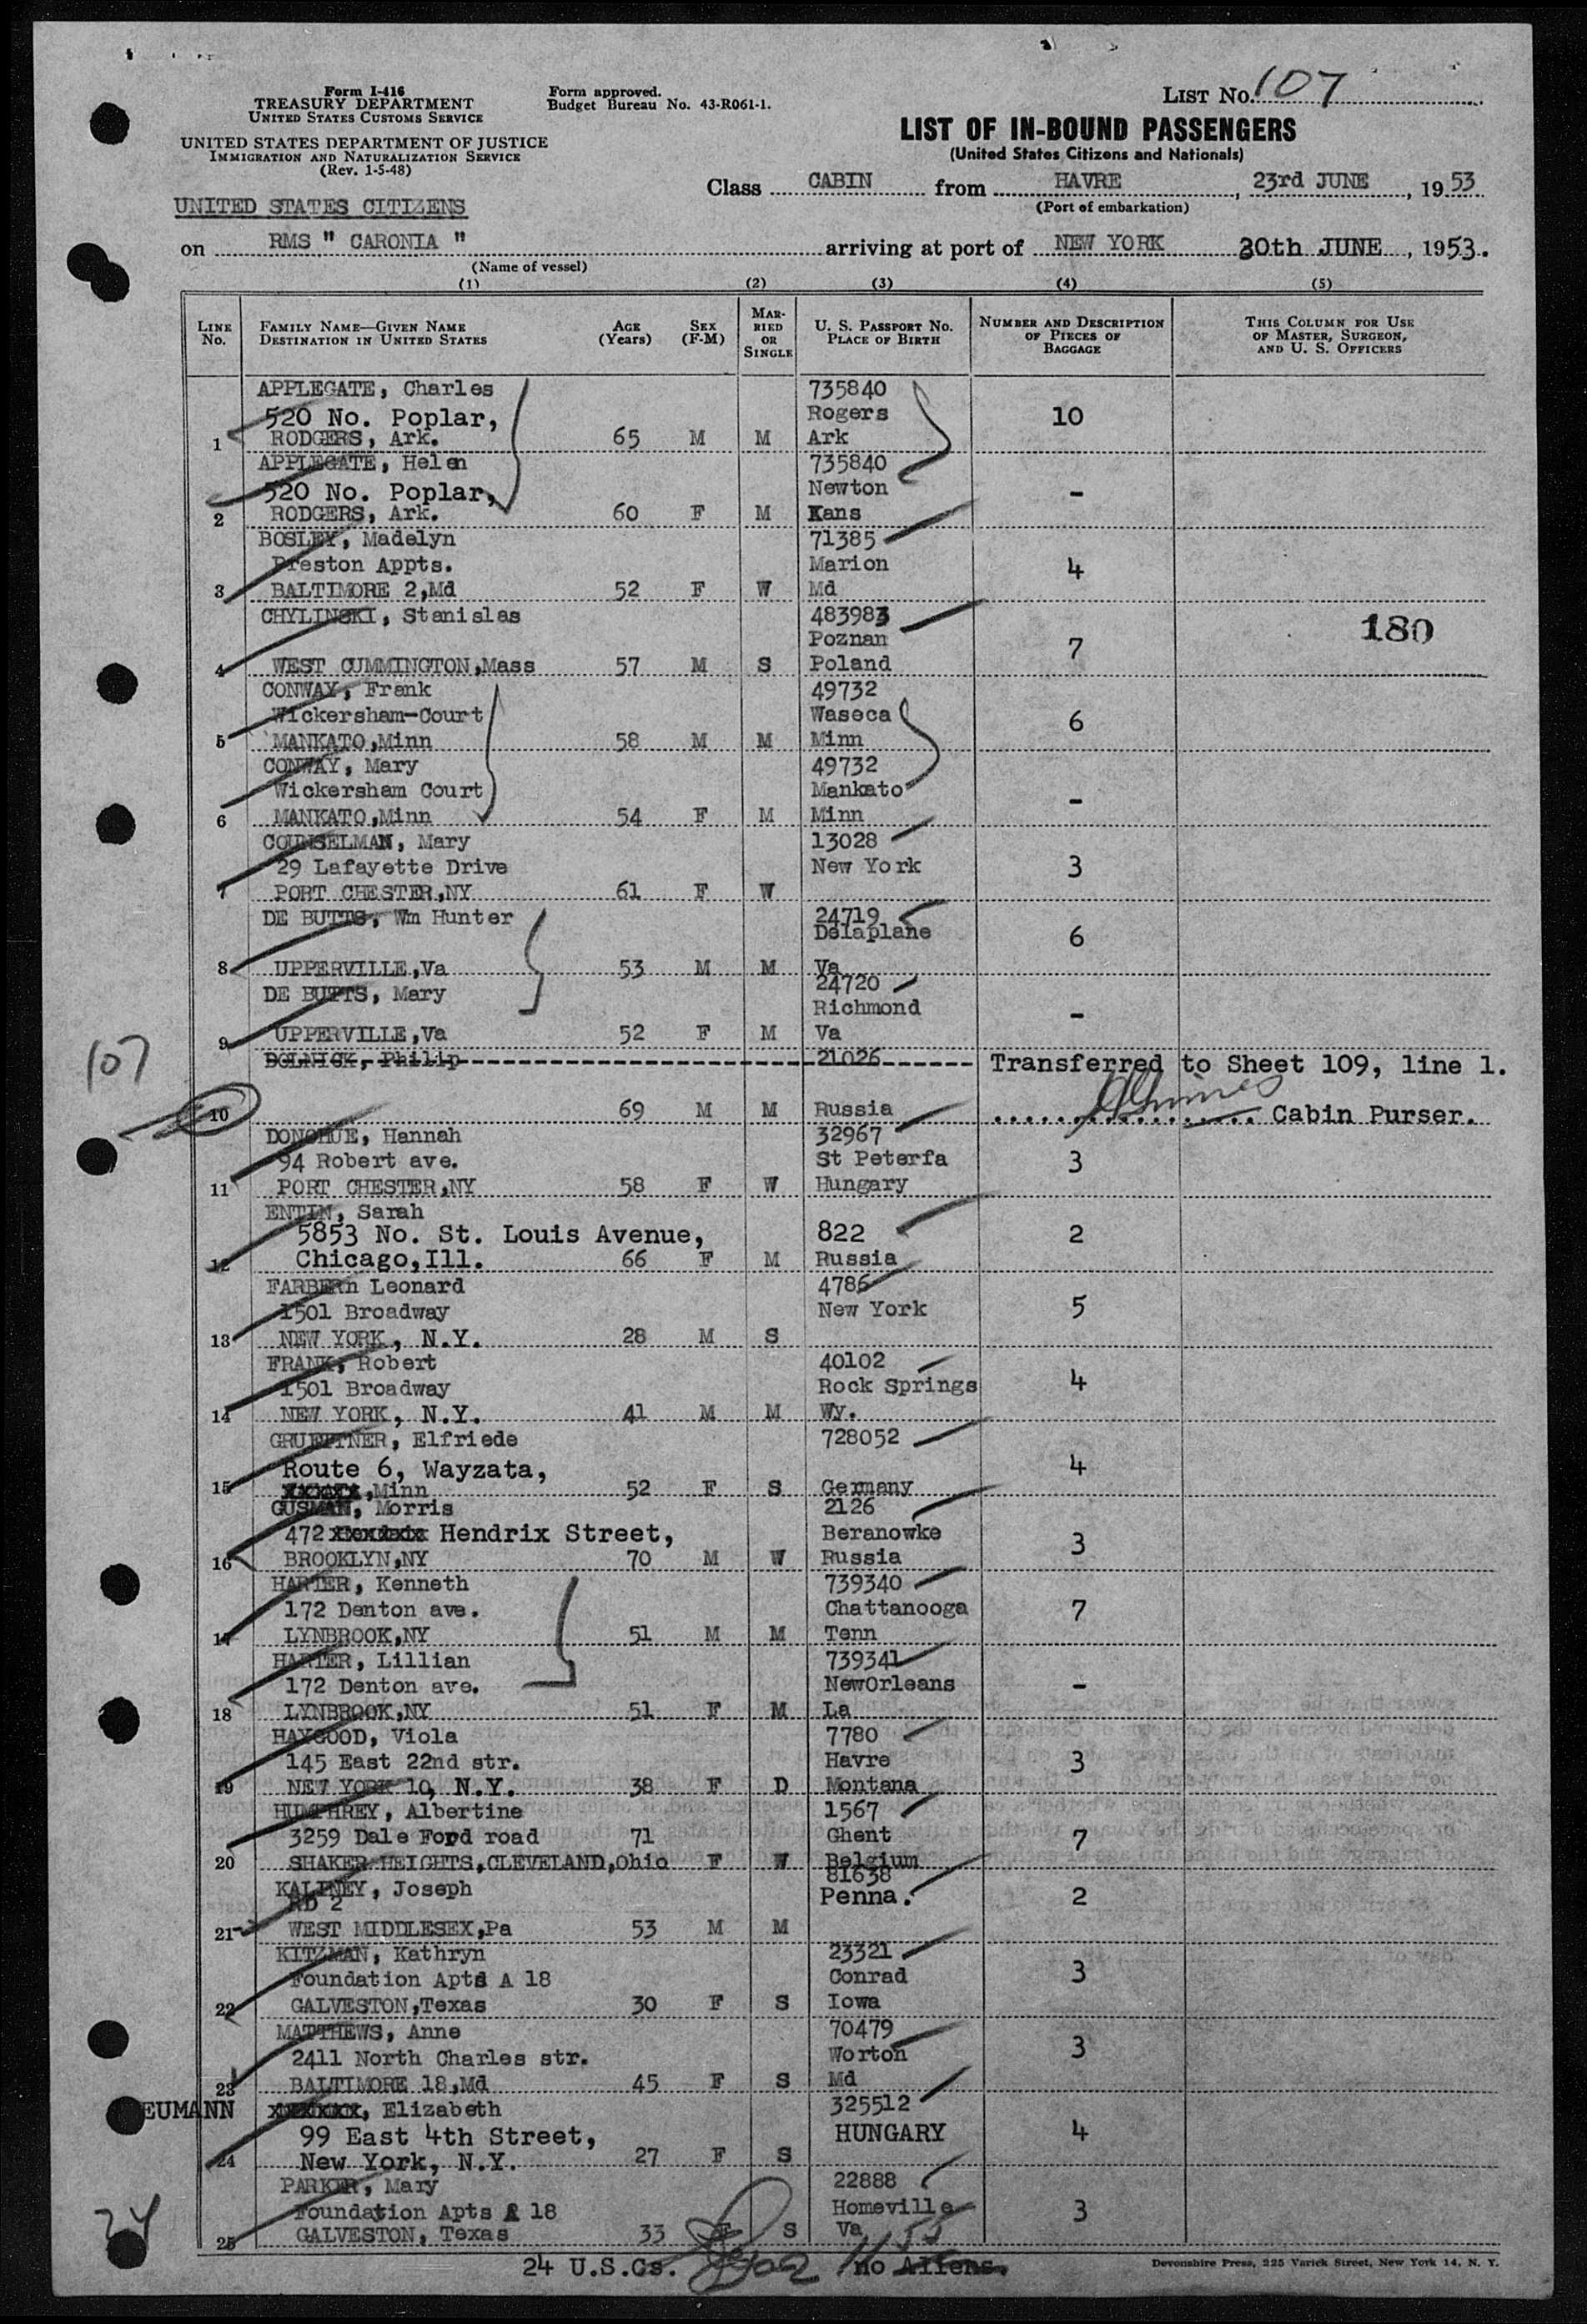 Form I-416
TREASURY DEPARTMENT
UNITED STATES CUSTOMS SERVICE
UNITED STATES DEPARTMENT OF JUSTICE
IMMIGRATION AND NATURALIZATION SERVICE
(Rev. 1-5-48)
Form approved.
Budget Bureau No. 43-R061-1.
LIST No. 107
LIST OF IN-BOUND PASSENGERS
(United States Citizens and Nationals)
Class CABIN from HAVRE, 23rd JUNE, 1953
(Port of embarkation)
UNITED STATES CITIZENS
on RMS " CARONIA " arriving at port of NEW YORK 30th JUNE, 1953.
(Name of vessel)
(1) (2) (3) (4) (5)
LINE No. FAMILY NAME—GIVEN NAME DESTINATION IN UNITED STATES AGE (Years) SEX (F-M) MARRIED OR SINGLE U. S. PASSPORT No. PLACE OF BIRTH NUMBER AND DESCRIPTION OF PIECES OF BAGGAGE THIS COLUMN FOR USE OF MASTER, SURGEON, AND U. S. OFFICERS
APPLEGATE, Charles 735840
520 No. Poplar, Rogers 10
1 RODGERS, Ark. 65 M M Ark
APPLEGATE, Helen 735840
520 No. Poplar, Newton -
2 RODGERS, Ark. 60 F M Kans
BOSLEY, Madelyn 71385
Preston Appts. Marion 4
3 BALTIMORE 2,Md 52 F W Md
CHYLINSKI, Stanislas 483983
Poznan 7 180
4 WEST CUMMINGTON,Mass 57 M S Poland
CONWAY, Frank 49732
Wickersham-Court Waseca 6
5 MANKATO,Minn 58 M M Minn
CONWAY, Mary 49732
Wickersham Court Mankato -
6 MANKATO,Minn 54 F M Minn
COUNSELMAN, Mary 13028
29 Lafayette Drive New York 3
7 PORT CHESTER,NY 61 F W
DE BUTTS, Wm Hunter 24719
Delaplane 6
8 UPPERVILLE,Va 53 M M Va
DE BUTTS, Mary 24720
Richmond -
9 UPPERVILLE,Va 52 F M Va
107
DOLNICK, Philip 21026 Transferred to Sheet 109, line 1.
10 69 M M Russia Cabin Purser.
DONOHUE, Hannah 32967
94 Robert ave. St Peterfa 3
11 PORT CHESTER,NY 58 F W Hungary
ENTIN, Sarah
5853 No. St. Louis Avenue, 822 2
12 Chicago,Ill. 66 F M Russia
FARBERn Leonard 4786
1501 Broadway New York 5
13 NEW YORK, N.Y. 28 M S
FRANK, Robert 40102
1501 Broadway Rock Springs 4
14 NEW YORK, N.Y. 41 M M Wy.
GRUETTNER, Elfriede 728052
Route 6, Wayzata, 4
15 ,Minn 52 F S Germany
GUSMAN, Morris 2126
472 Hendrix Street, Beranowke 3
16 BROOKLYN,NY 70 M W Russia
HARTER, Kenneth 739340
172 Denton ave. Chattanooga 7
17 LYNBROOK,NY 51 M M Tenn
HARTER, Lillian 739341
172 Denton ave. NewOrleans -
18 LYNBROOK,NY 51 F M La
HAYGOOD, Viola 7780
145 East 22nd str. Havre 3
19 NEW YORK 10, N.Y. 38 F D Montana
HUMPHREY, Albertine 1567
3259 Dale Ford road 71 Ghent 7
20 SHAKER HEIGHTS,CLEVELAND,Ohio F W Belgium
KALINEY, Joseph 81638
RD 2 Penna. 2
21 WEST MIDDLESEX,Pa 53 M M
KITZMAN, Kathryn 23321
Foundation Apts A 18 Conrad 3
22 GALVESTON,Texas 30 F S Iowa
MATTHEWS, Anne 70479
2411 North Charles str. Worton 3
23 BALTIMORE 18,Md 45 F S Md
EUMANN xxxxxxx, Elizabeth 325512
99 East 4th Street, HUNGARY 4
24 New York, N.Y. 27 F S
PARKER, Mary 22888
Foundation Apts A 18 Homeville 3
25 GALVESTON, Texas 33 F S Va
24
24 U.S.Cs. no Aliens.
Devonshire Press, 225 Varick Street, New York 14, N. Y.